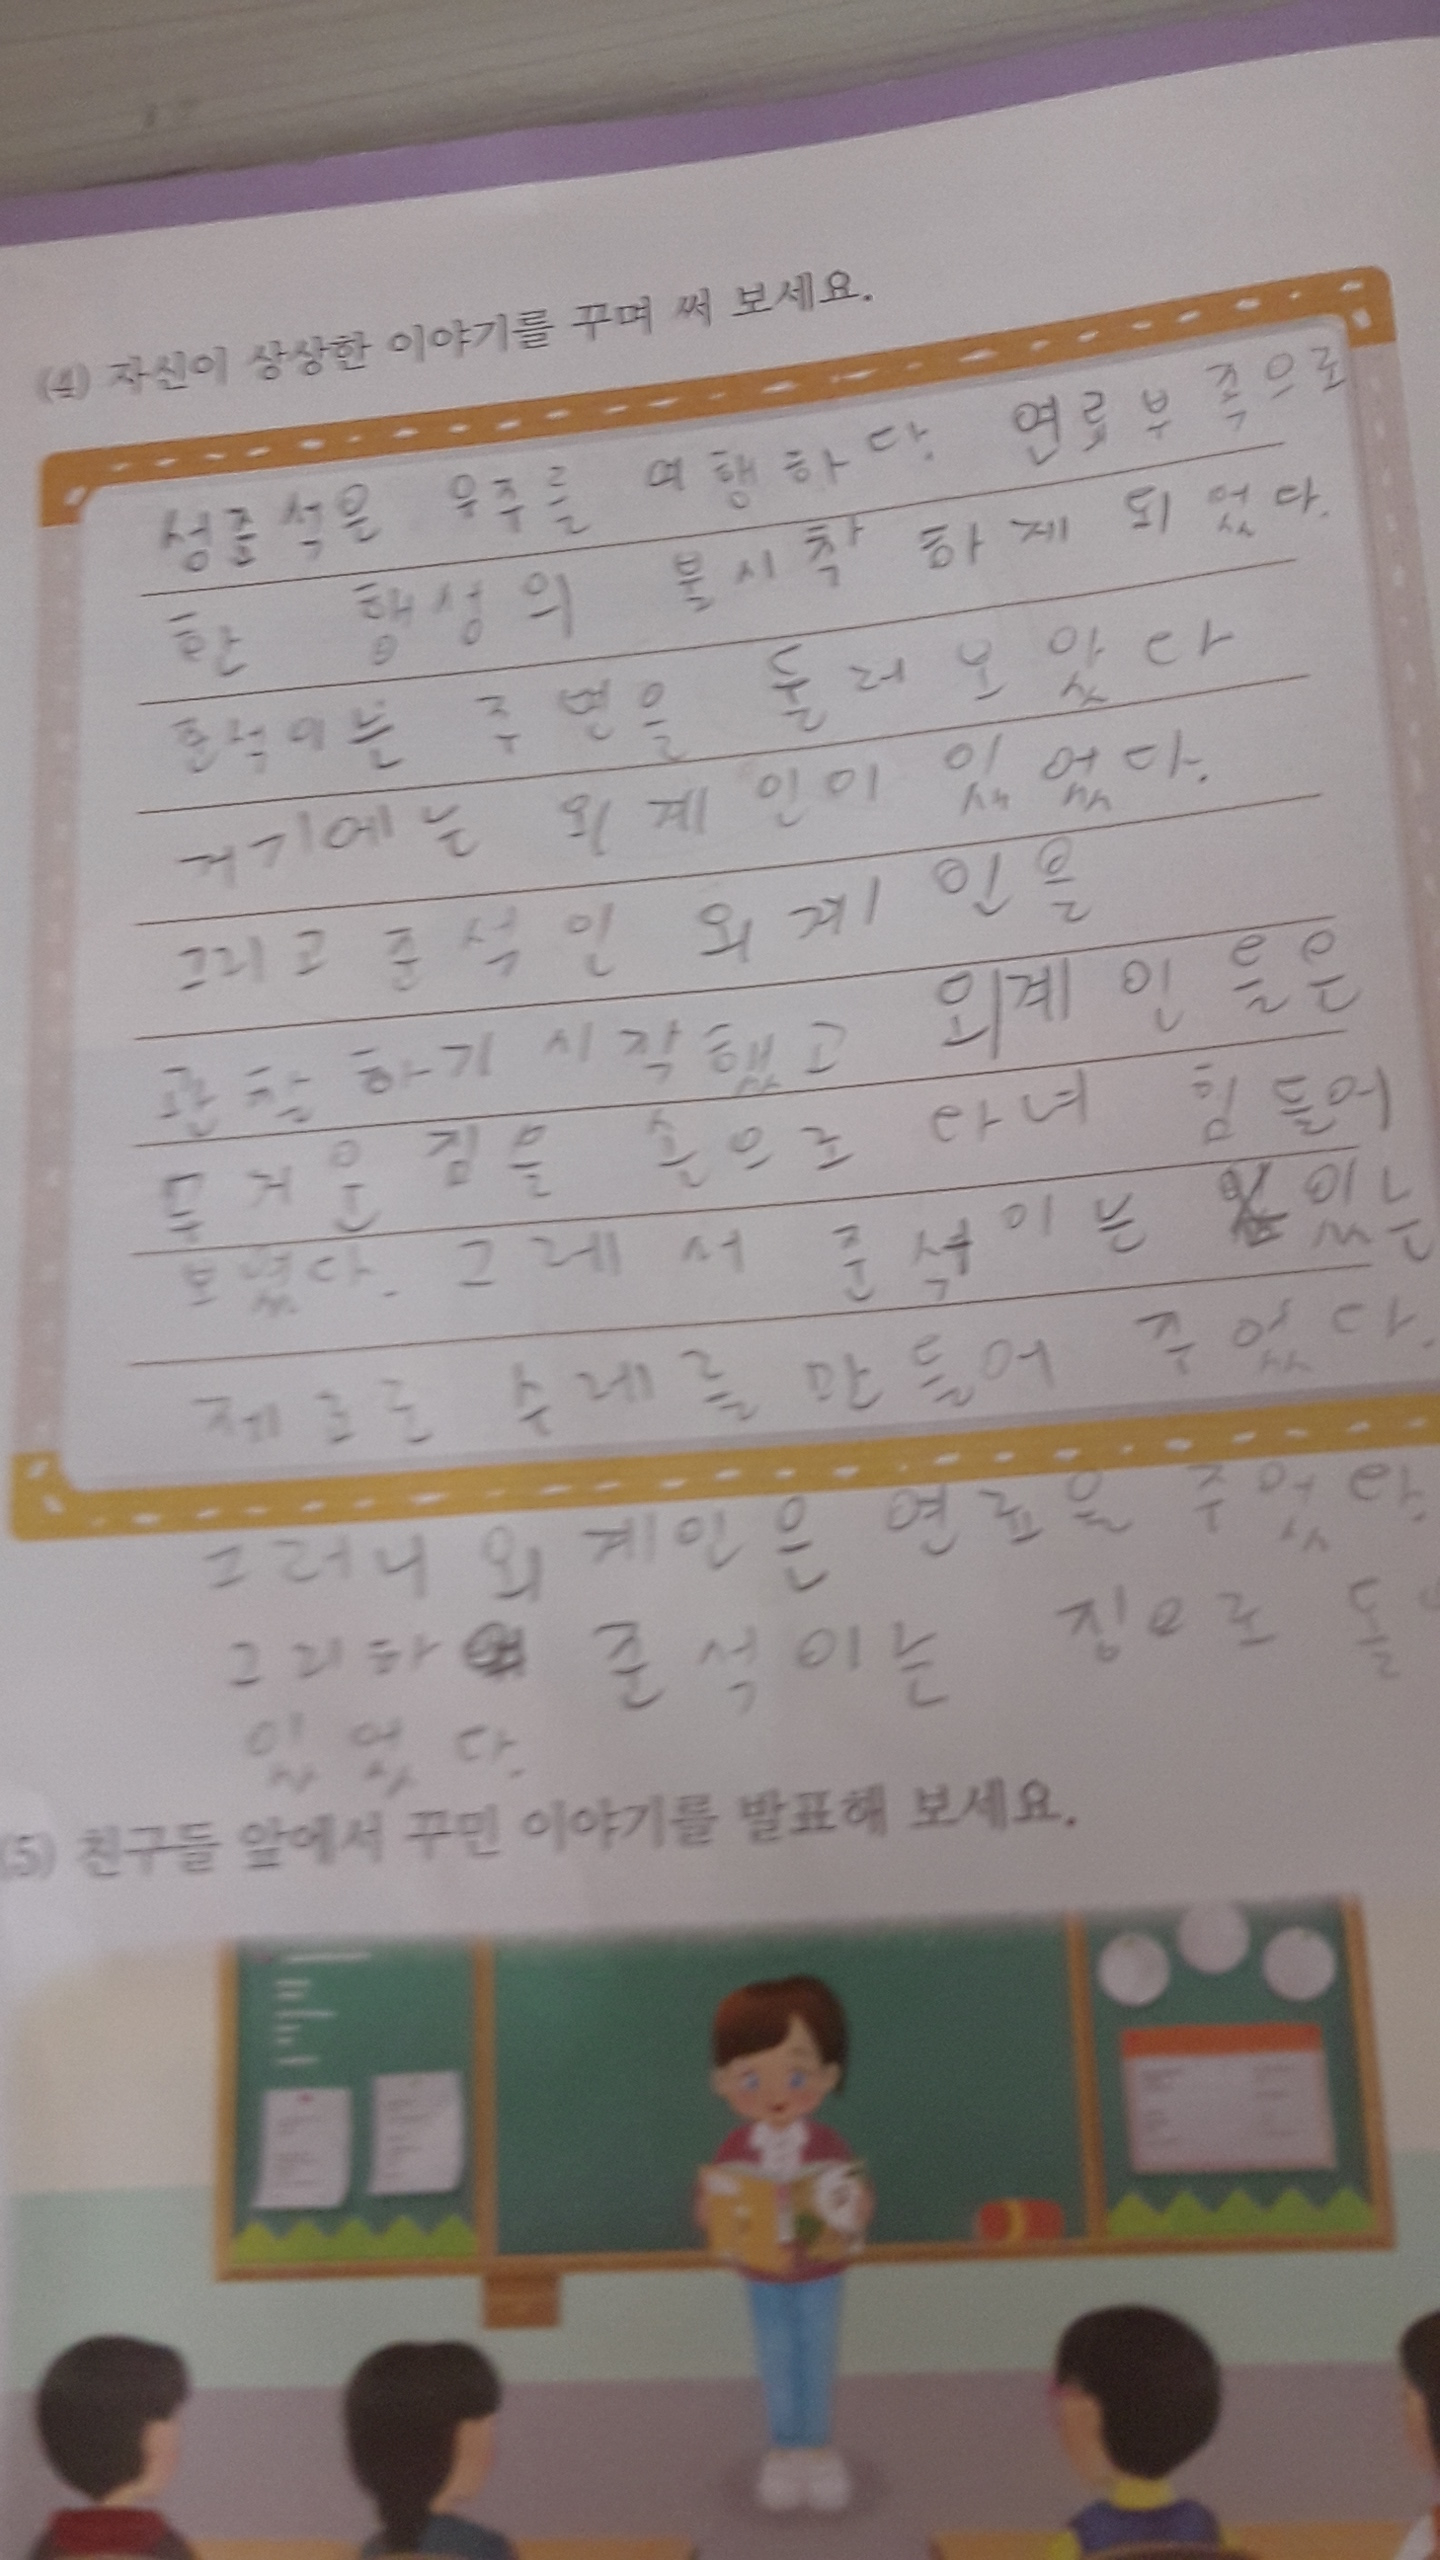 (4) 자신이 상상한 이야기를 꾸며 써 보세요.
성준석은 우주를 여행하다. 연료부족으로
한 행성의 불시착 하게 되었다.
준석이는 주변을 둘러보았다
거기에는 외계인이 있었다.
그리고 준석인 외계인을
관찰하기 시작했고 외계인들은
무거운 짐을 손으로 라녀 힘들어
보였다. 그레서 준석이는 있는
제료로 수레를 만들어 주었다.
그러니 외계인은 연료을 주었다.
그리하여 준석이는 집으로
있었다.
(5) 친구들 앞에서 꾸민 이야기를 발표해 보세요.